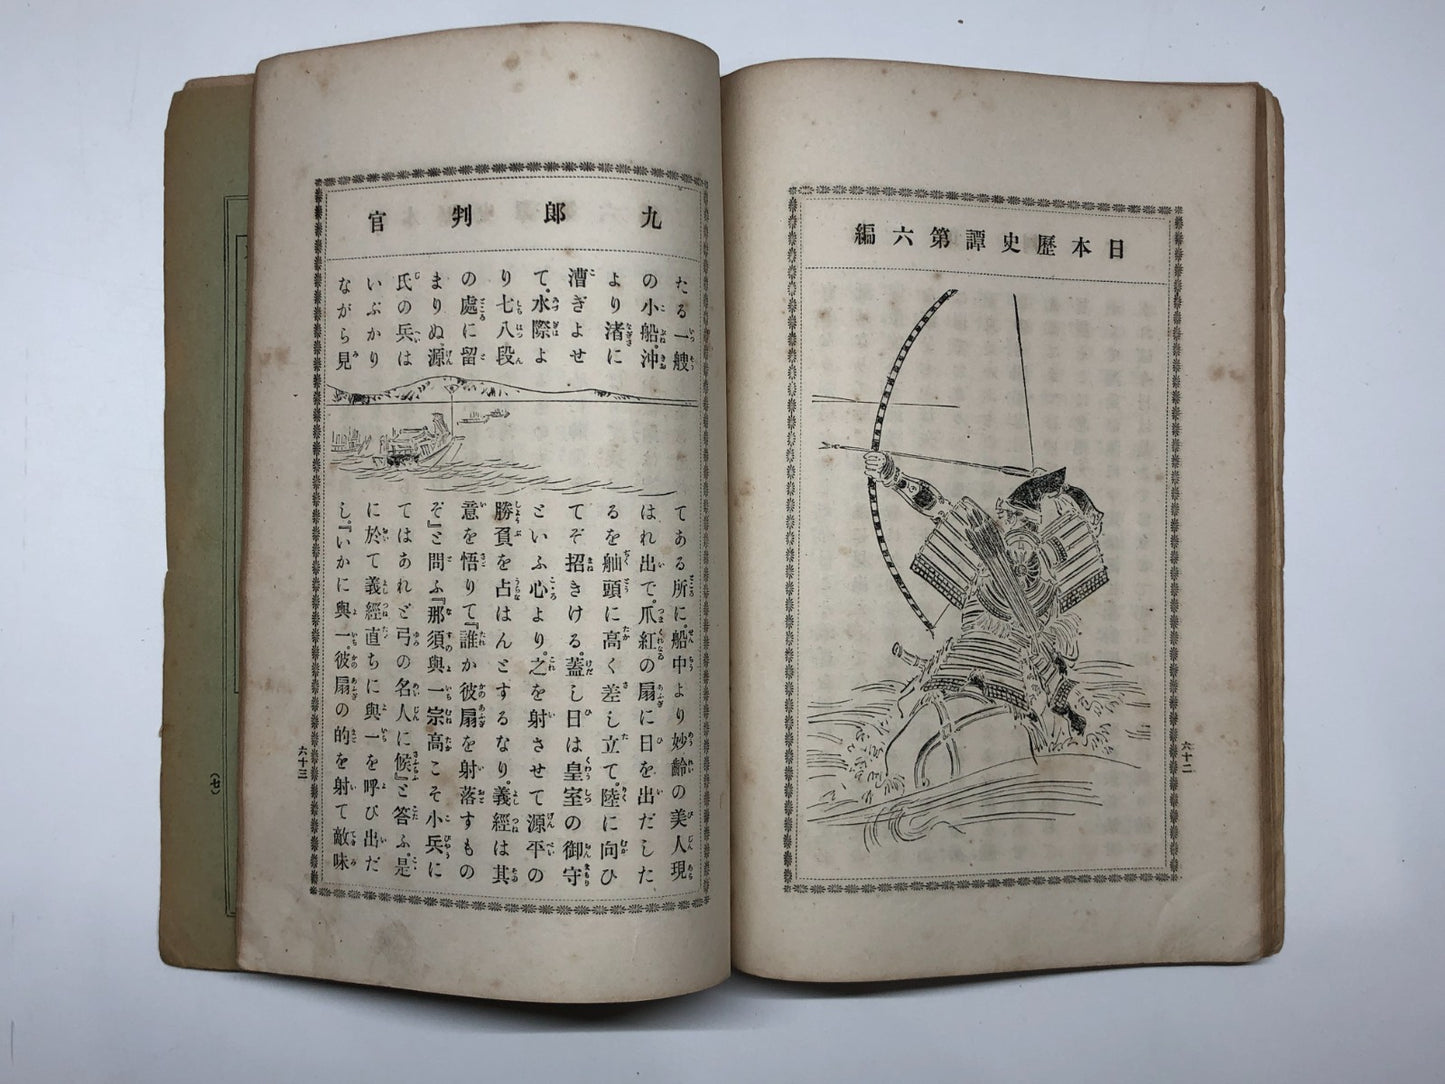 日本歷史譚第六編
六十二
九郎判官
たる一艘
の小船。沖
より渚に
漕ぎよせ
て。水際よ
り七八段
の處に留
まりぬ源
氏の兵は
いぶかり
ながら見
てある所に。船中より妙齡の美人現
はれ出で。爪紅の扇に日を出だした
るを舳頭に高く差し立て。陸に向ひ
てぞ招きける。蓋し日は皇室の御守
といふ心より。之を射させて源平の
勝負を占はんとするなり。義經は其
意を悟りて『誰か彼扇を射落すもの
ぞ』と問ふ『那須與一宗高こそ小兵に
てはあれど弓の名人に候』と答ふ是
に於て義經直ちに與一を呼び出だ
し。『いかに與一。彼扇の的を射て敵味
六十三
(七)